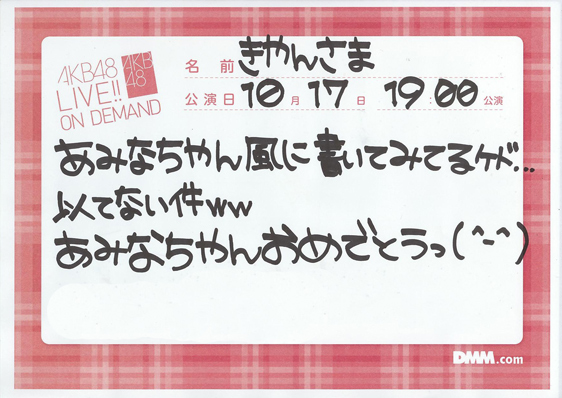 AKB48
LIVE!!
ON DEMAND
AKB
48
名前 きやんさま
公演日 10月17日 19:00公演
あみなちゃん風に書いてみてるケド…
以てない件ww
あみなちゃんおめでとうっ(^-^)
DMM.com